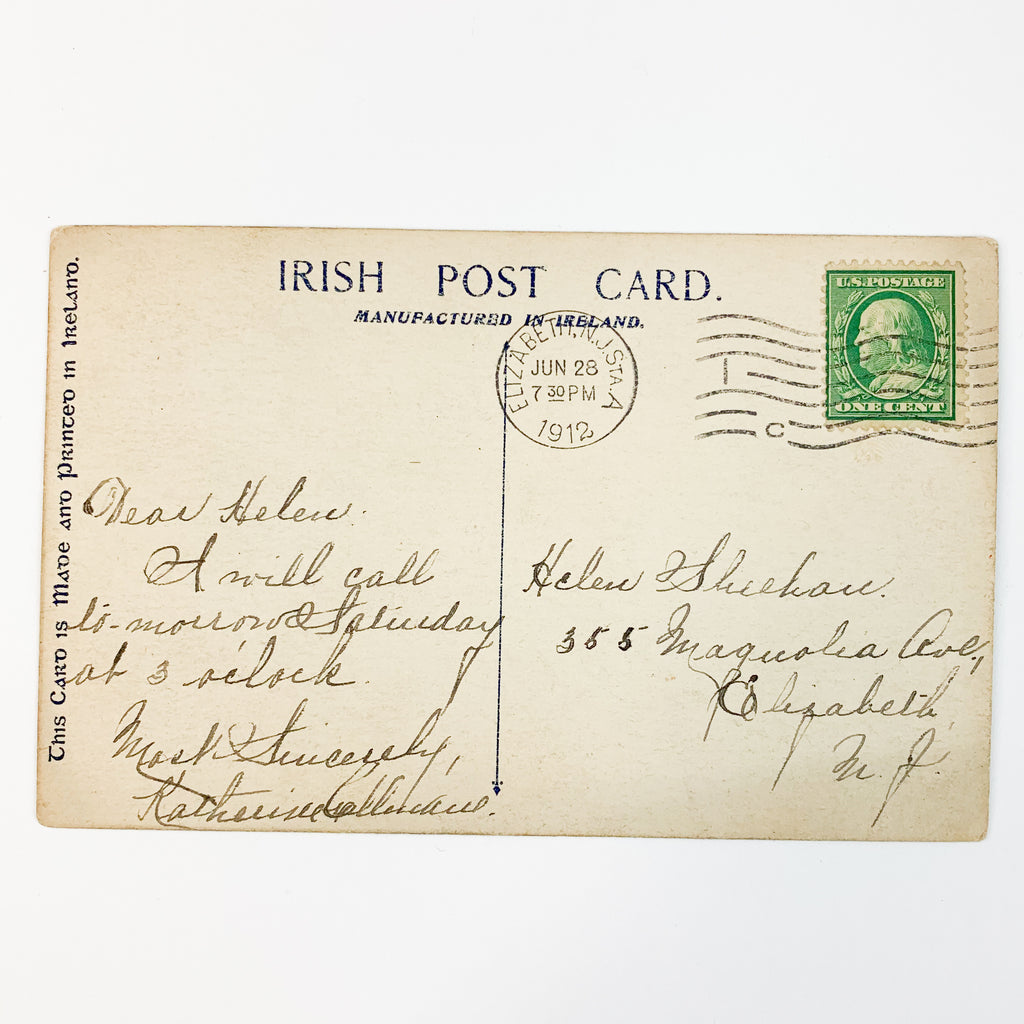 This Card is Made and Printed in Ireland.
IRISH POST CARD.
MANUFACTURED IN IRELAND.
ELIZABETH, N.J. STA. A
JUN 28
7 30 PM
1912
1
C
U.S. POSTAGE
ONE CENT
Dear Helen.
I will call
to-morrow Saturday
at 3 o'clock.
Most Sincerely,
Katherine
Helen Sheehan.
355 Magnolia Ave.,
Elizabeth,
N. J.